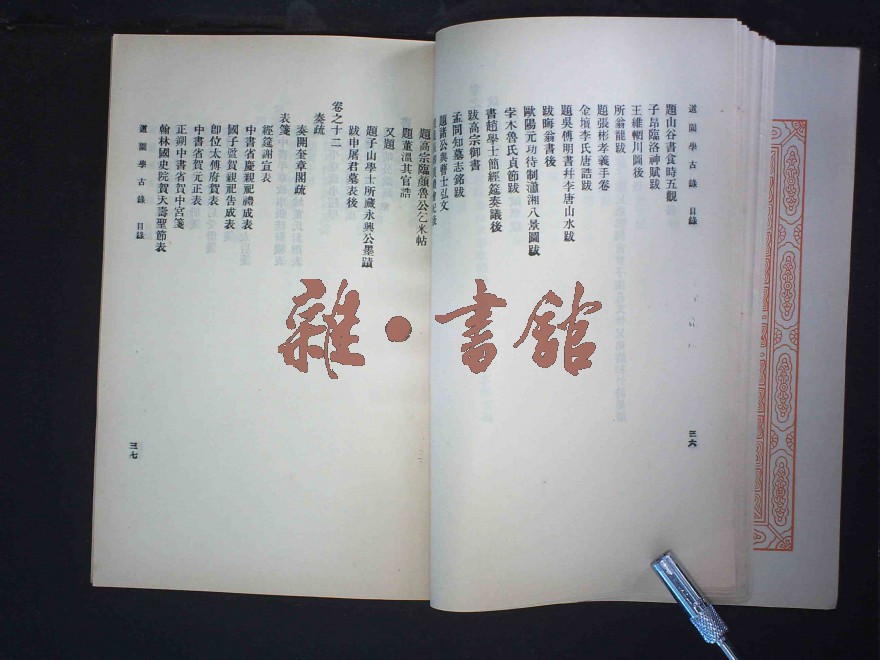 道園學古錄 目錄
題山谷書食時五觀
子昂臨洛神賦跋
王維輞川圖後
所翁龍跋
題張彬孝義手卷
金壇李氏唐誥跋
題吳傅明書幷李唐山水跋
跋晦翁書後
歐陽元功待制瀟湘八景圖跋
孛木魯氏貞節跋
書趙學士簡經筵奏議後
跋高宗御書
孟同知墓志銘跋
題諸公與曹士弘文
三六
題高宗臨顏魯公乞米帖
題董溫其官誥
又題
題子山學士所藏永興公墨蹟
跋申屠君墓表後
卷之十二
奏疏
奏開奎章閣疏
表箋
經筵謝宣表
中書省慶親祀禮成表
國子監賀親祀告成表
卽位太傅府賀表
中書省賀元正表
正朔中書省賀中宮箋
翰林國史院賀天壽聖節表
道園學古錄 目錄
三七
雜·書館